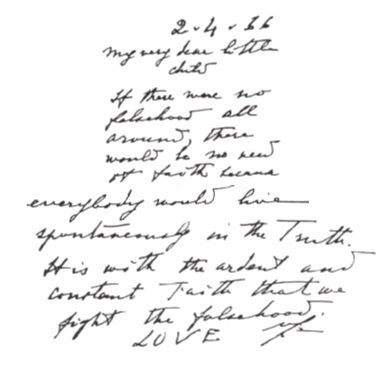 2-4-66
my very dear little
child
If there were no
falsehood all
around, there
would be no need
of faith because
everybody would live
spontaneously in the Truth.
It is with the ardent and
constant Faith that we
fight the falsehood.
LOVE